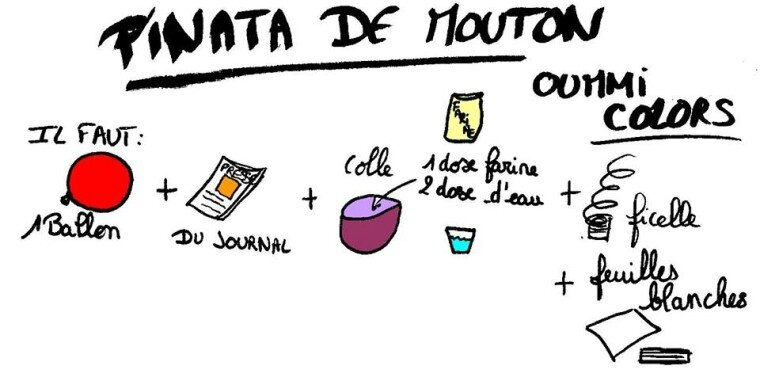 PINATA DE MOUTON
OUMMI
COLORS
IL FAUT:
1 Ballon
+
PRESSE
DU JOURNAL
+
Colle
FARINE
1 dose farine
2 dose d'eau
+
ficelle
+ feuilles
blanches